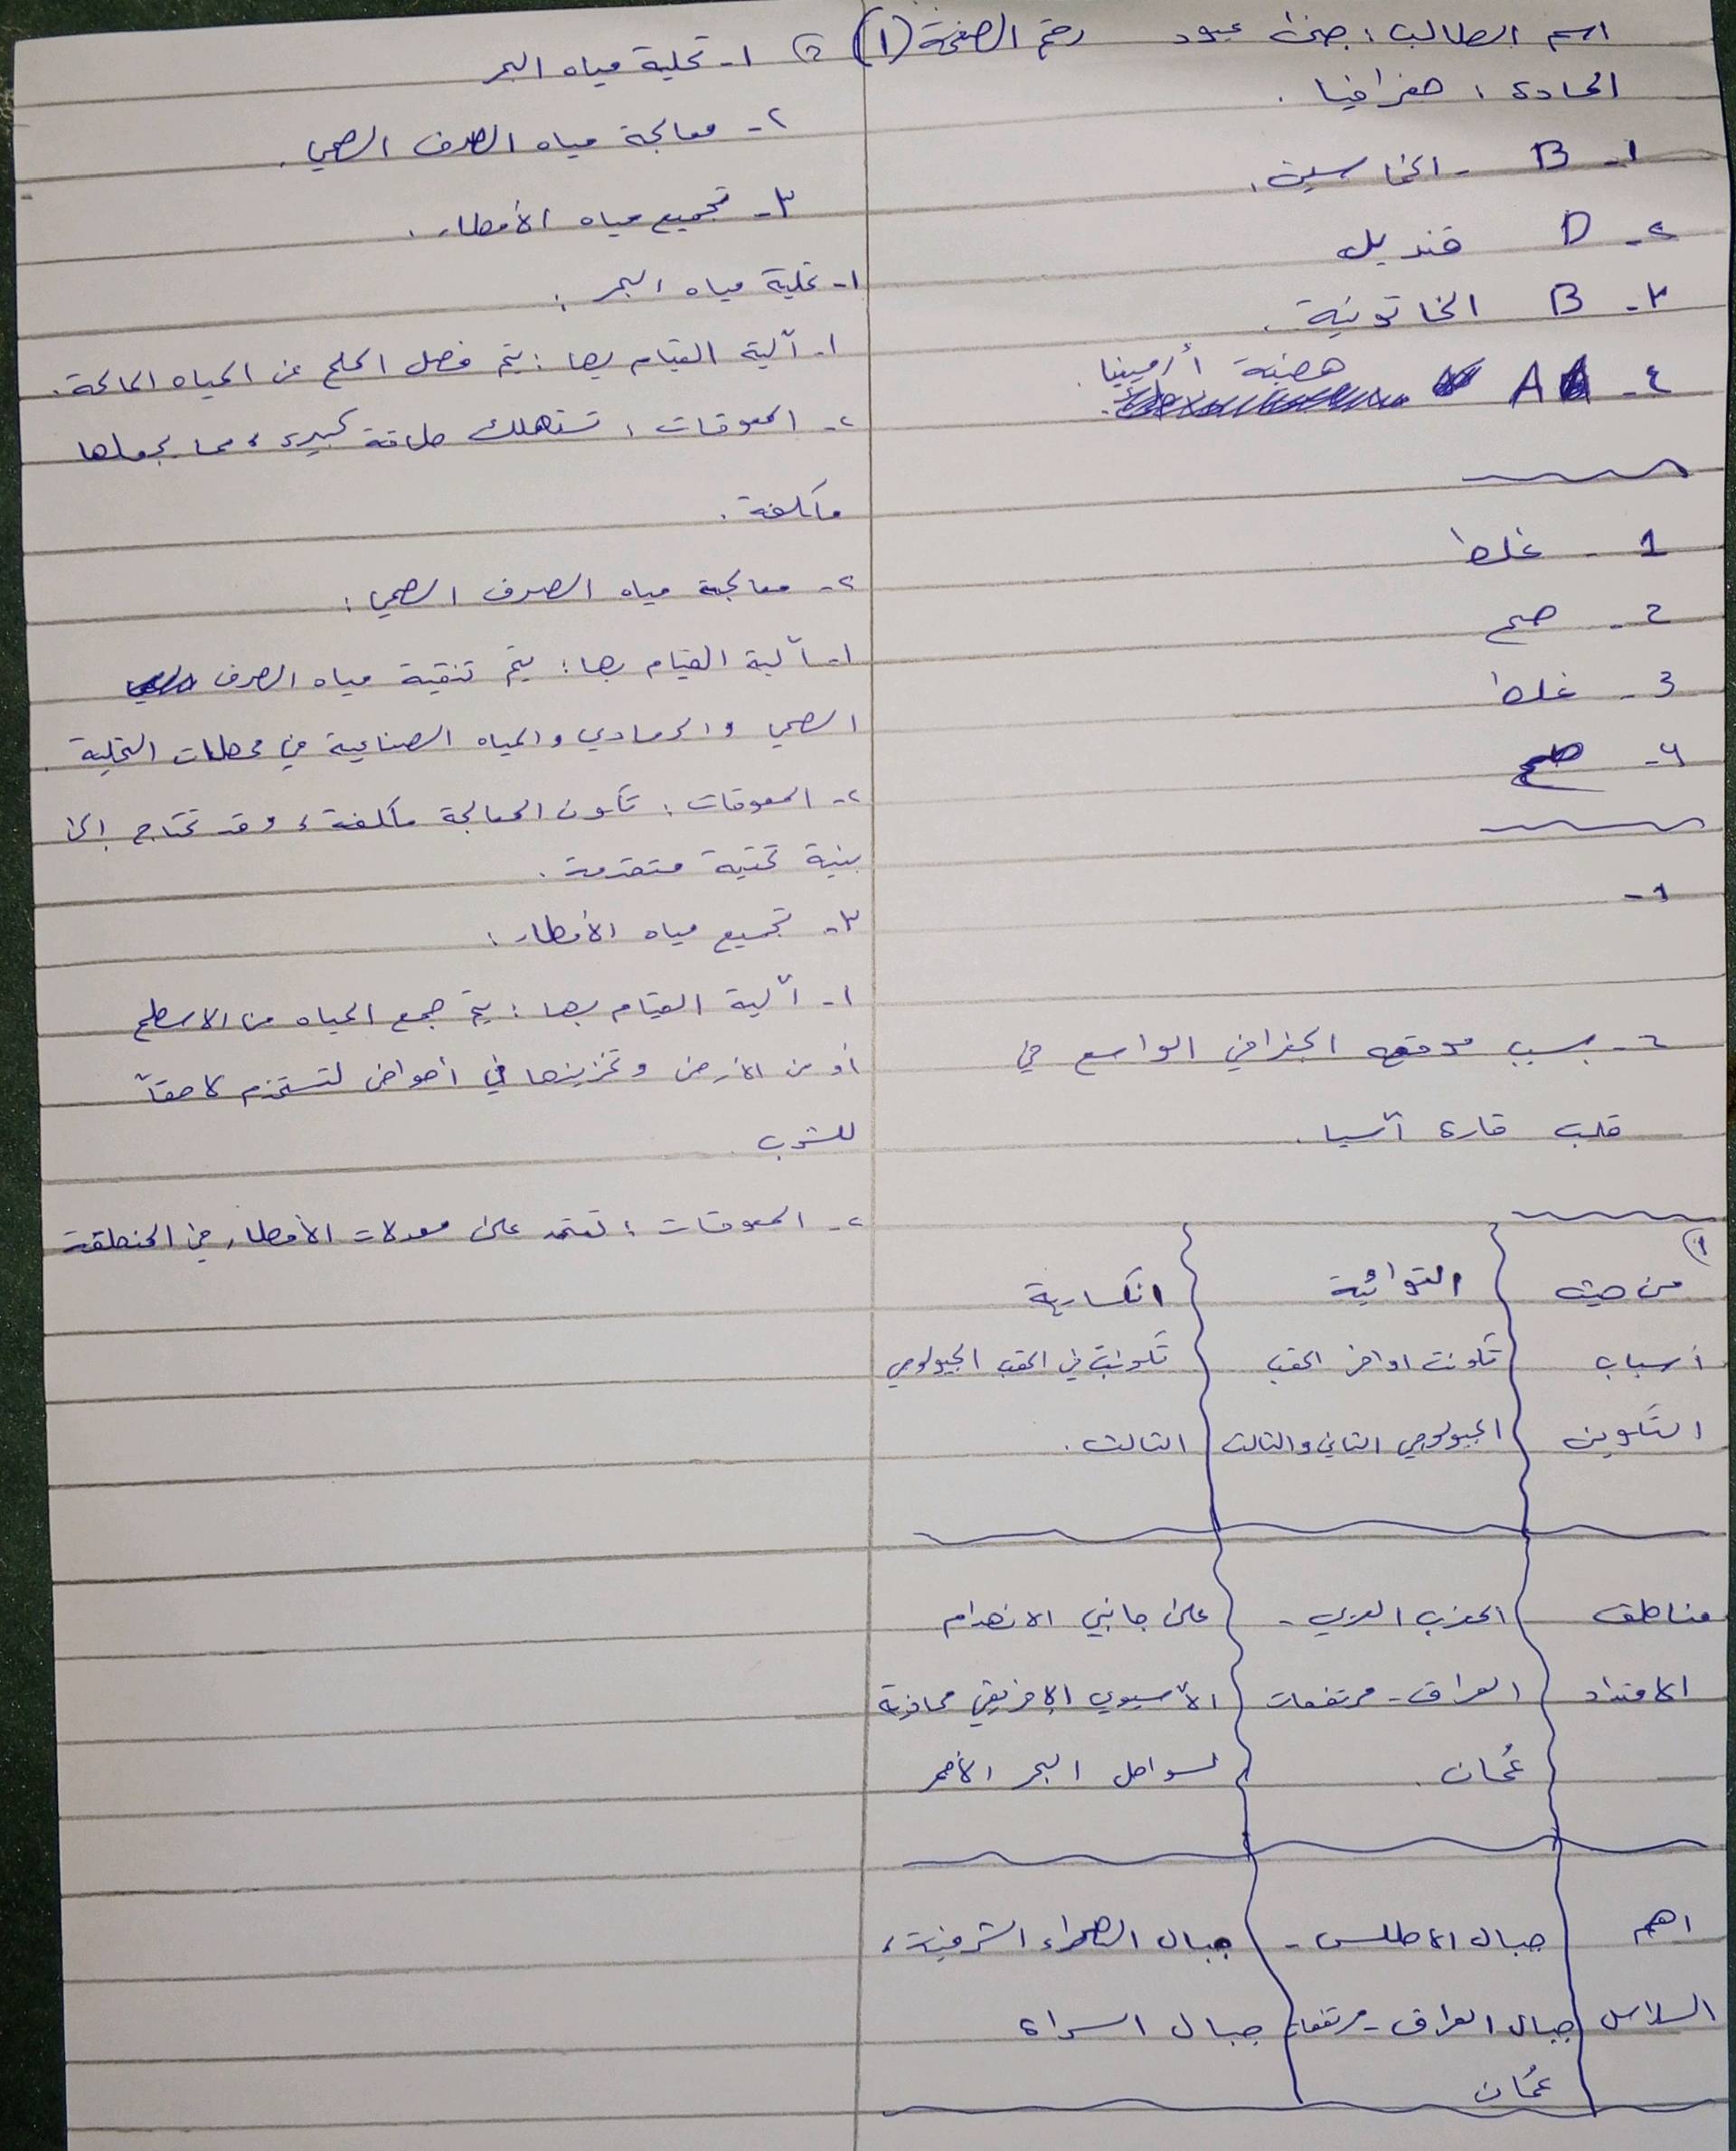 اسم الطالب : جنى عبود رقم الصفحة (١)
المادة : جغرافيا .
١- B - الخماسين .
٢- D قنديل
٣- B الخاتونية .
٤- A هضبة أرمينيا .
1 - غلط
2 - صح
3 - غلط
4 - صح
1 -
2 - بسبب موقعه الجغرافي الواسع في
قلب قارة آسيا .
(1
من حيث التوائية انكسارية
أسباب تكونت اواخر الحقب تكونت في الحقب الجيولوجي
التكوين الجيولوجي الثاني والثالث الثالث .
مناطق المغرب العربي - على جانبي الانهدام
الامتداد العراق - مرتفعات الآسيوي الإفريقي محاذية
عُمان . لسواحل البحر الأحمر
اهم جبال الاطلس - جبال الصحراء الشرقية ،
السلاسل جبال العراق - مرتفعات جبال السراة
عُمان
2) ١- تحلية مياه البحر
٢- معالجة مياه الصرف الصحي .
٣- تجميع مياه الأمطار .
١- تحلية مياه البحر :
١- آلية القيام بها : يتم فصل الملح عن المياه المالحة .
٢- المعوقات : تستهلك طاقة كبيرة ، مما يجعلها
مكلفة .
٢- معالجة مياه الصرف الصحي :
١- آلية القيام بها : يتم تنقية مياه الصرف
الصحي والرمادي والمياه الصناعية في محطات التحلية .
٢- المعوقات : تكون المعالجة مكلفة ، وقد تحتاج إلى
بنية تحتية متقدمة .
٣- تجميع مياه الأمطار :
١- آلية القيام بها : يتم جمع المياه من الاسطح
أو من الأرض وتخزينها في أحواض لتستخدم لاحقاً
للشرب
٢- المعوقات : تعتمد على معدلات الأمطار في المنطقة